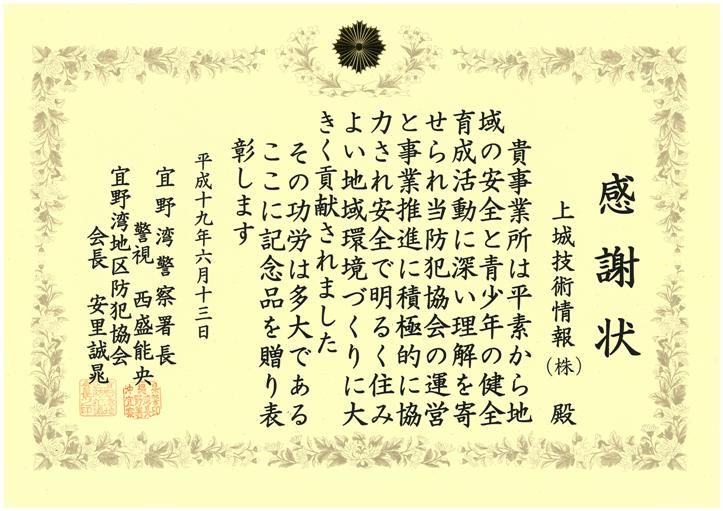 感謝状
上城技術情報(株) 殿
貴事業所は平素から地
域の安全と青少年の健全
育成活動に深い理解を寄
せられ当防犯協会の運営
と事業推進に積極的に協
力され安全で明るく住み
よい地域環境づくりに大
きく貢献されました
その功労は多大である
ここに記念品を贈り表
彰します
平成十九年六月十三日
宜野湾警察署長
警視 西盛能央
宜野湾地区防犯協会
会長 安里誠晃